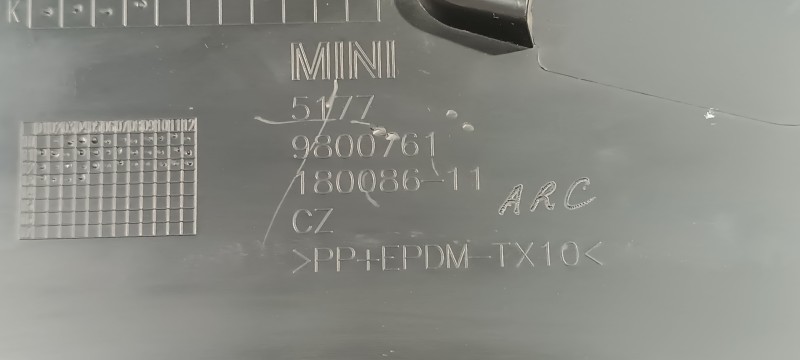 K
MINI
5177
9800761
180086-11
ARC
CZ
>PP+EPDM-TX10<